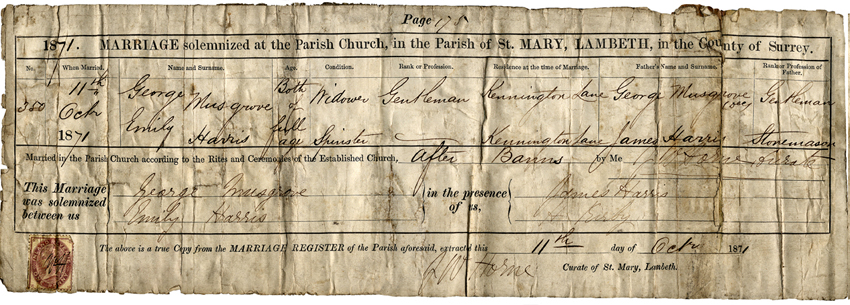 Page 175
1871. MARRIAGE solemnized at the Parish Church, in the Parish of St. MARY, LAMBETH, in the County of Surrey.
No. When Married. Name and Surname. Age. Condition. Rank or Profession. Residence at the time of Marriage. Father's Name and Surname. Rank or Profession of Father.
350 11th Octr 1871 George Musgrove Both of full age Widower Gentleman Kennington Lane George Musgrove Gentleman
Emily Harris Spinster Kennington Lane James Harris Stonemason
Married in the Parish Church according to the Rites and Ceremonies of the Established Church, After Banns by Me Curate
This Marriage was solemnized between us George Musgrove in the presence of us, James Harris
Emily Harris
The above is a true Copy from the MARRIAGE REGISTER of the Parish aforesaid, extracted this 11th day of Octr 1871
Curate of St. Mary, Lambeth.